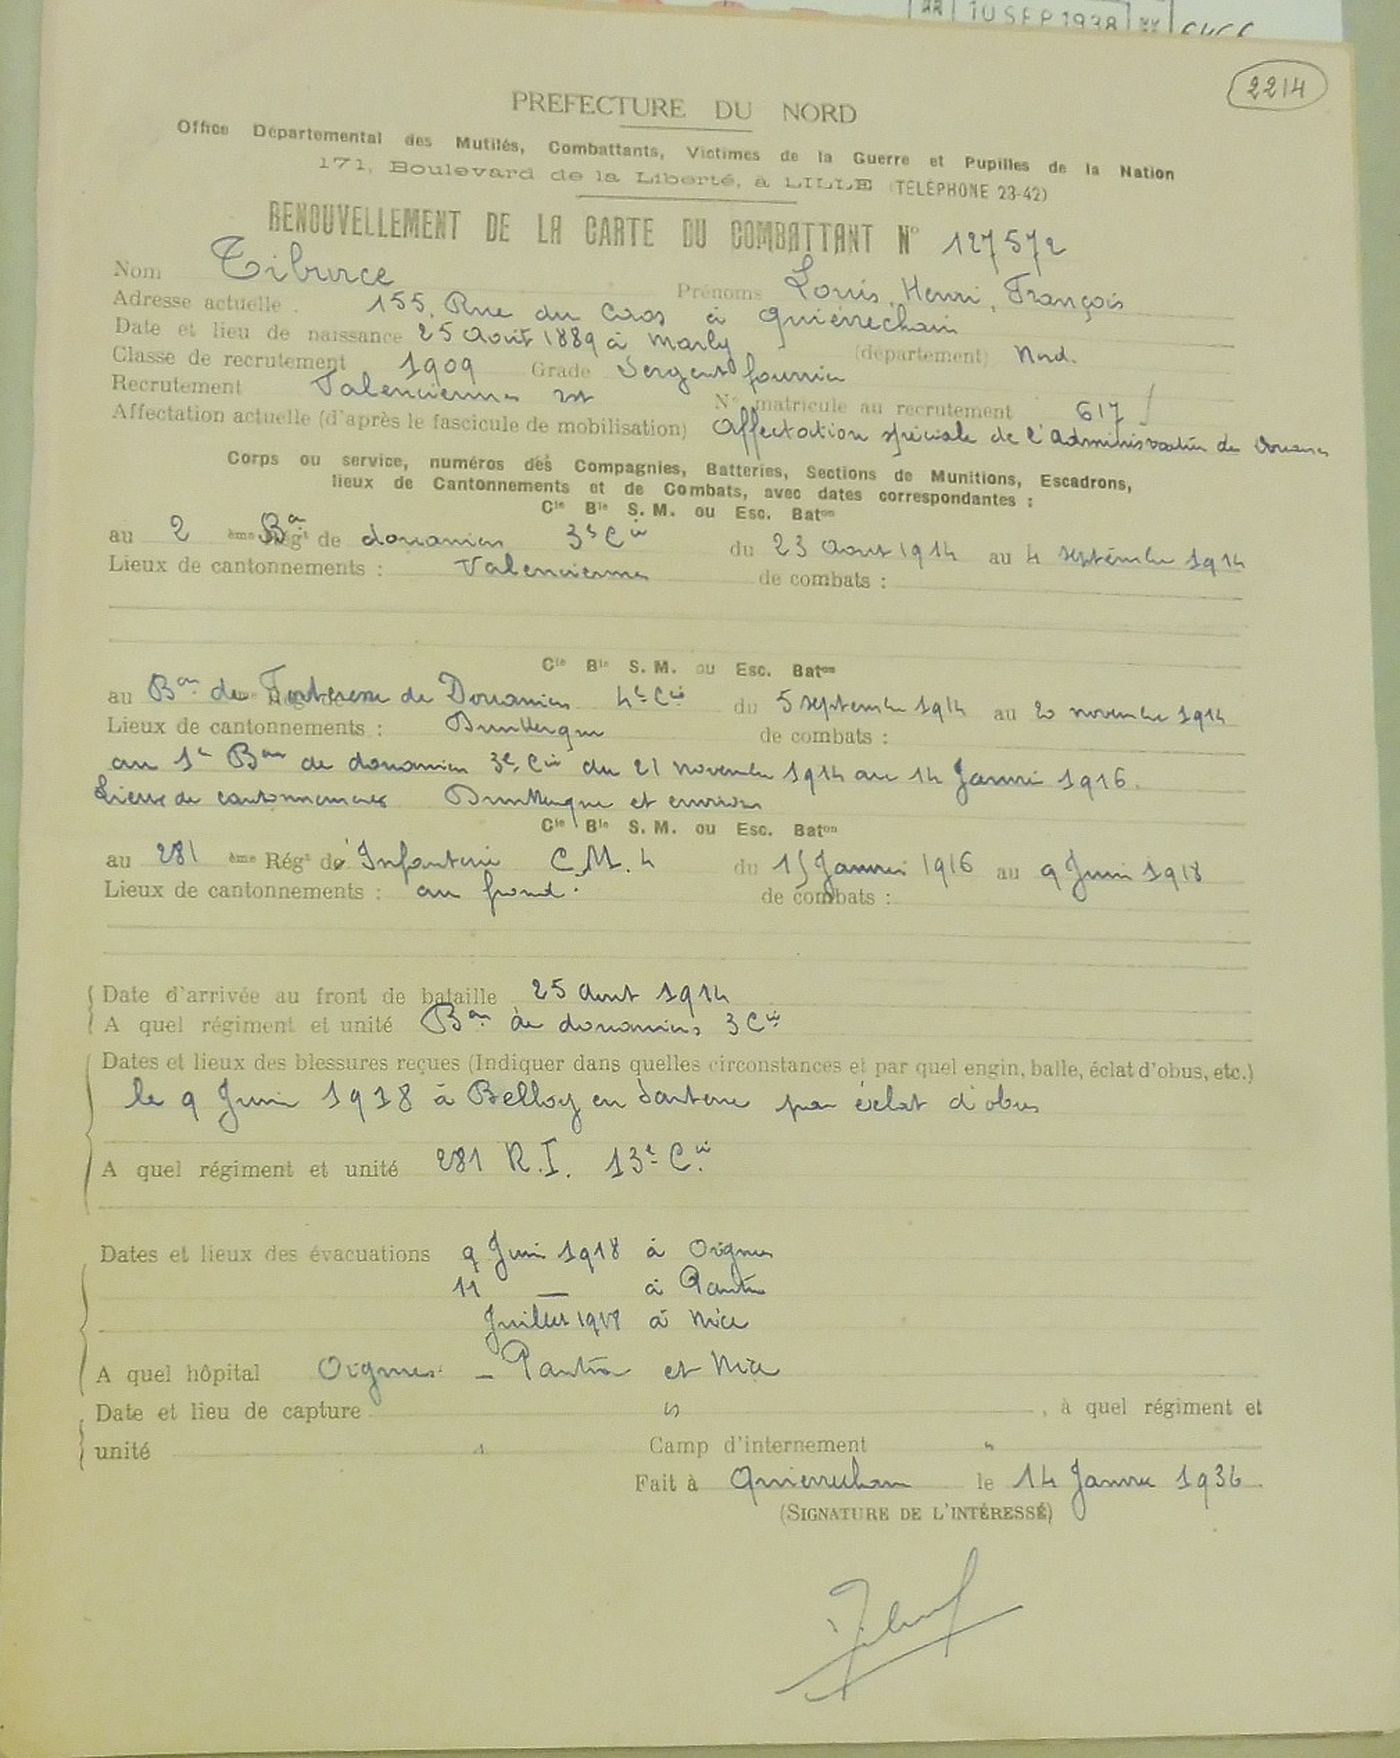 10 SEP 1938
2214
PREFECTURE DU NORD
Office Départemental des Mutilés, Combattants, Victimes de la Guerre et Pupilles de la Nation
171, Boulevard de la Liberté, à LILLE (TÉLÉPHONE 23-42)
RENOUVELLEMENT DE LA CARTE DU COMBATTANT N° 127572
Nom Tiburce Prénoms Louis, Henri, François
Adresse actuelle : 155, Rue du à Quiévrechain
Date et lieu de naissance 25 Août 1889 à Marly (département) Nord.
Classe de recrutement 1909 Grade Sergent fourrier
Recrutement Valenciennes N° matricule au recrutement 617
Affectation actuelle (d'après le fascicule de mobilisation) Affectation spéciale de l'Administration des Douanes
Corps ou service, numéros des Compagnies, Batteries, Sections de Munitions, Escadrons,
lieux de Cantonnements et de Combats, avec dates correspondantes :
Cie Bie S. M. ou Esc. Baton
au 2 ème Bon Régt de douaniers 3e Cie du 23 Aout 1914 au 4 septembre 1914
Lieux de cantonnements : Valenciennes de combats :
Cie Bie S. M. ou Esc. Baton
au Bon de Forteresse de Douaniers 4e Cie du 5 septembre 1914 au 20 novembre 1914
Lieux de cantonnements : Dunkerque de combats :
au 1e Bon de douaniers 3e Cie du 21 novembre 1914 au 14 Janvier 1916.
Lieux de cantonnements Dunkerque et environs
Cie Bie S. M. ou Esc. Baton
au 281 ème Régt d'Infanterie C.M. 4 du 15 Janvier 1916 au 9 Juin 1918
Lieux de cantonnements : au front. de combats :
Date d'arrivée au front de bataille 25 Aout 1914
A quel régiment et unité Bon de douaniers 3 Cie
Dates et lieux des blessures reçues (Indiquer dans quelles circonstances et par quel engin, balle, éclat d'obus, etc.)
le 9 Juin 1918 à Belloy en Santerre par éclat d'obus
A quel régiment et unité 281 R.I. 13e Cie
Dates et lieux des évacuations 9 Juin 1918 à
11 — à Pantin
Juillet 1918 à Nice
A quel hôpital – Pantin et Nice
Date et lieu de capture , à quel régiment et
unité Camp d'internement
Fait à Quiévrechain le 14 Janvier 1936
(SIGNATURE DE L'INTÉRESSÉ)